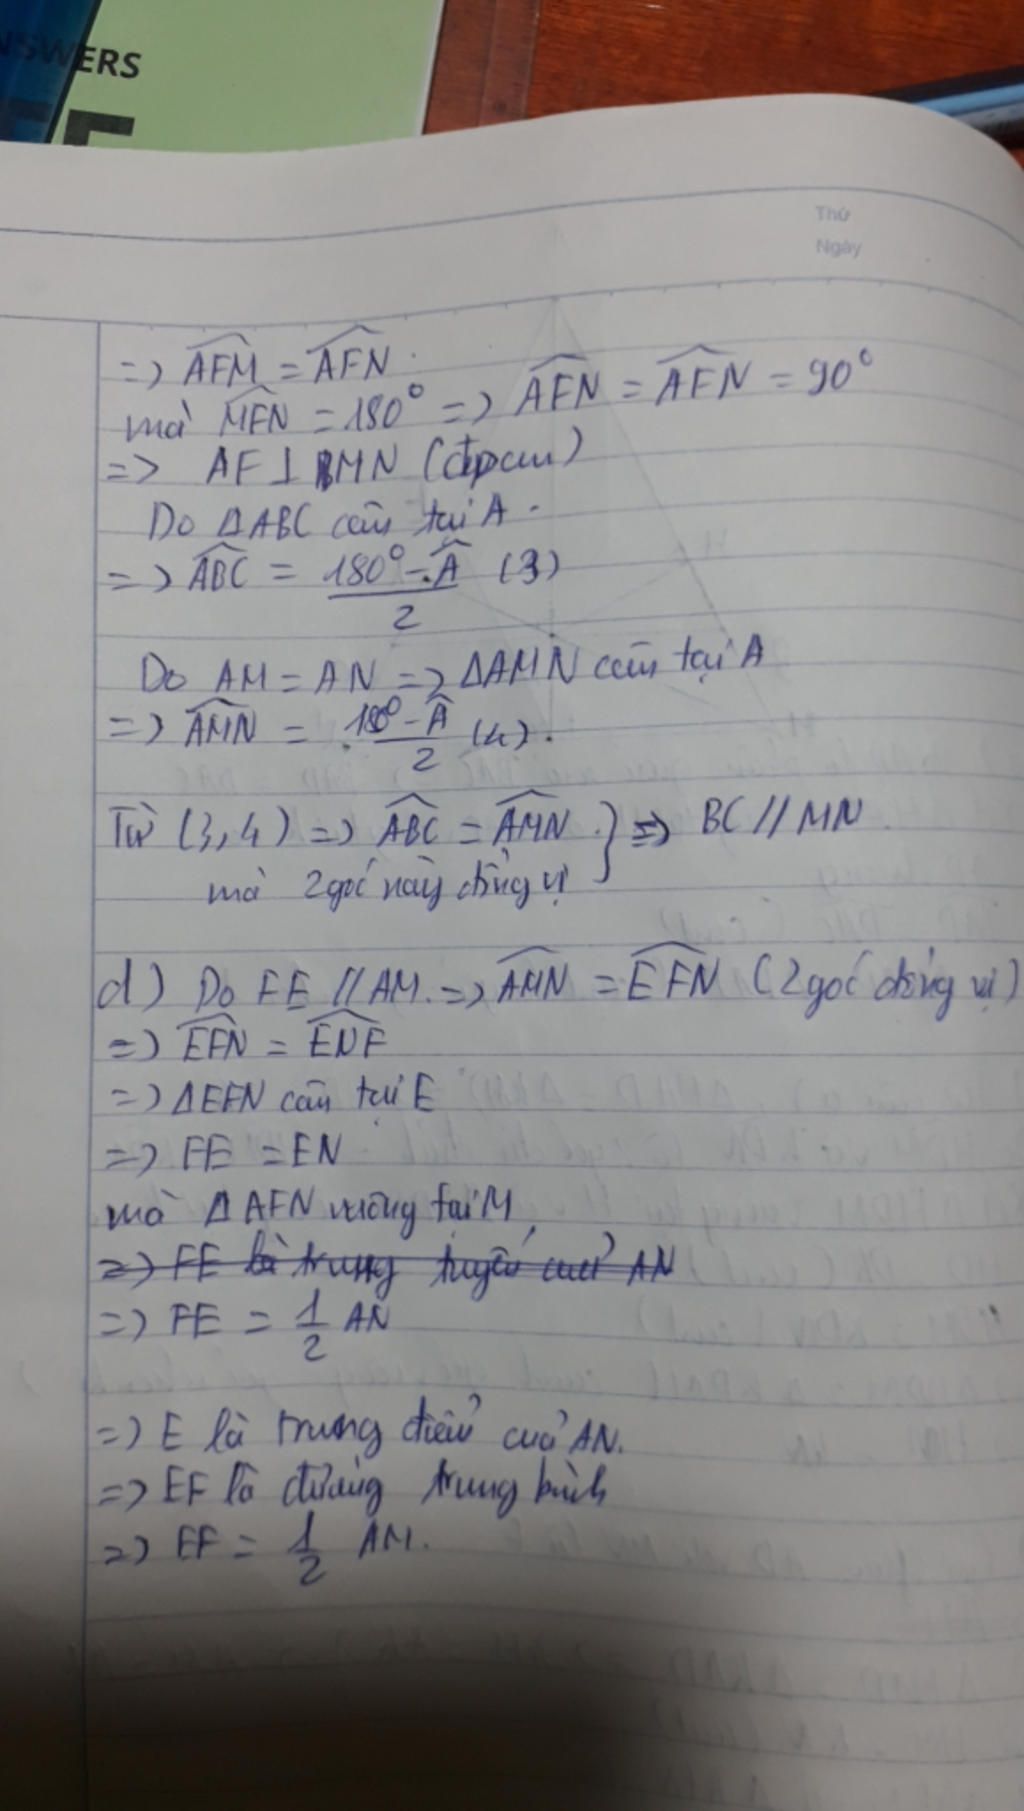 NSWERS
Thứ
Ngày
=> \widehat{AFM} = \widehat{AFN}.
mà \widehat{MFN} = 180° => \widehat{AFN} = \widehat{AFN} = 90°
=> AF ⊥ MN (đpcm)
Do ΔABC cân tại A.
=> \widehat{ABC} = \frac{180° - \widehat{A}}{2} (3)
Do AM = AN => ΔAMN cân tại A
=> \widehat{AMN} = \frac{180° - \widehat{A}}{2} (4).
Từ (3,4) => \widehat{ABC} = \widehat{AMN} } => BC // MN
mà 2 góc này đồng vị
d) Do FE // AM. => \widehat{AMN} = \widehat{EFN} (2 góc đồng vị)
=> \widehat{EFN} = \widehat{ENF}
=> ΔEFN cân tại E
=> FE = EN
mà ΔAFN vuông tại M
=> FE là trung tuyến của AN
=> FE = \frac{1}{2} AN
=> E là trung điểm của AN.
=> EF là đường trung bình
=> EF = \frac{1}{2} AM.